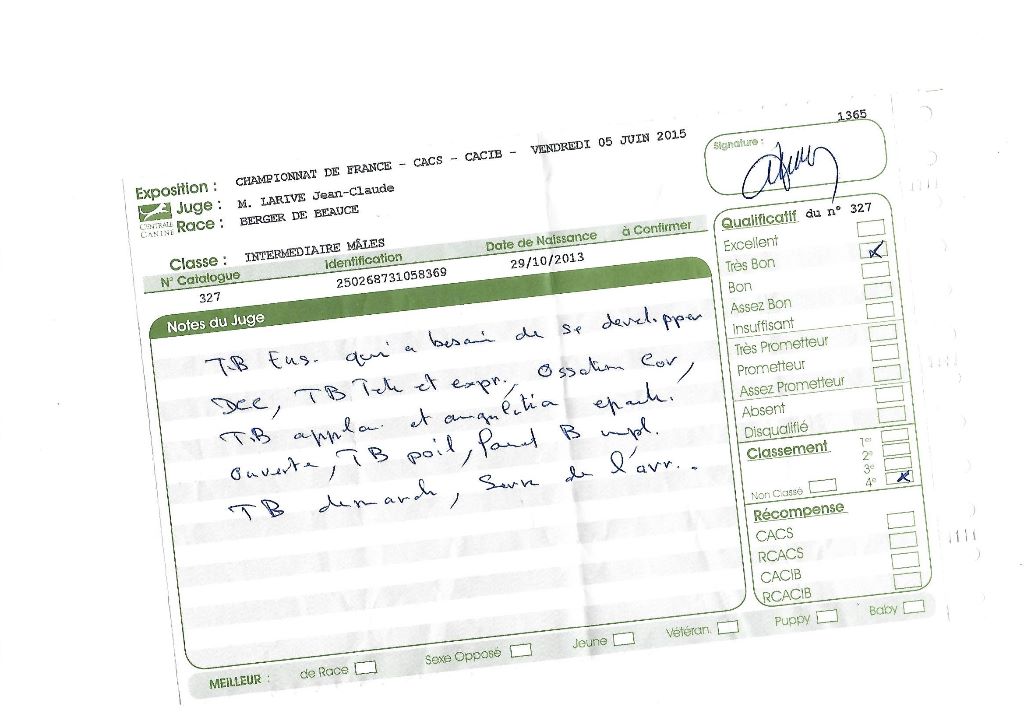 1365
Exposition : CHAMPIONNAT DE FRANCE - CACS - CACIB - VENDREDI 05 JUIN 2015
Juge : M. LARIVE Jean-Claude
CENTRALE CANINE
Race : BERGER DE BEAUCE
Classe : INTERMEDIAIRE MÂLES
N° Catalogue Identification Date de Naissance à Confirmer
327 250268731058369 29/10/2013
Notes du Juge
TB Ens. qui a besoin de se developper
Dcc, TB Tete et expr., ossature cor,
T.B aplla. et angulation epaule.
ouverte, TB poil, fouet B impl.
TB demarche, serre de l'arr..
Signature :
Qualificatif du n° 327
Excellent
Très Bon x
Bon
Assez Bon
Insuffisant
Très Prometteur
Prometteur
Assez Prometteur
Absent
Disqualifié
Classement 1er
2e
3e
Non Classé 4e x
Récompense
CACS
RCACS
CACIB
RCACIB
MEILLEUR : de Race Sexe Opposé Jeune Vétéran Puppy Baby